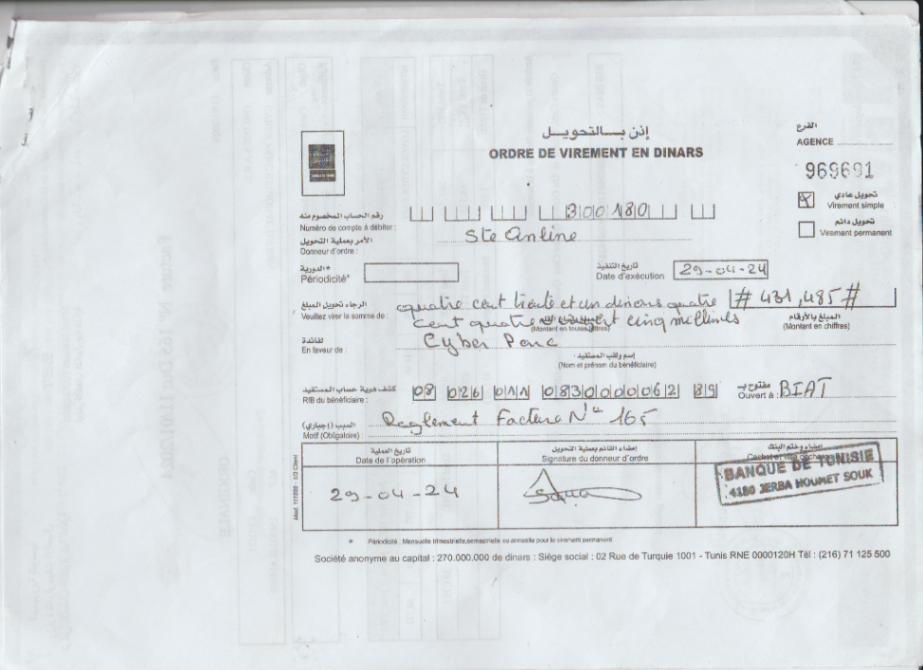 إذن بـــالتحويـــل
ORDRE DE VIREMENT EN DINARS
الفرع
AGENCE
969691
تحويل عادي
Virement simple
تحويل دائم
Virement permanent
رقم الحساب المخصوم منه
Numéro de compte à débiter :
300180
الأمر بعملية التحويل
Donneur d'ordre :
Ste Online
الدورية*
Périodicité*
تاريخ التنفيذ
Date d'exécution
29-04-24
الرجاء تحويل المبلغ
Veuillez virer la somme de :
quatre cent trente et un dinars quatre
# 431,485 #
cent quatre vingt cinq millimes
(Montant en toutes lettres)
المبلغ بالأرقام
(Montant en chiffres)
لفائدة
En faveur de :
Cyber Parc
إسم ولقب المستفيد
(Nom et prénom du bénéficiaire)
كشف هوية حساب المستفيد
RIB du bénéficiaire :
08 026 011 0830000062 89
مفتوح بـ
Ouvert à :
BIAT
السبب (إجباري)
Motif (Obligatoire) :
Reglement Facture N° 165
تاريخ العملية
Date de l'opération
إمضاء القائم بعملية التحويل
Signature du donneur d'ordre
إمضاء وختم البنك
29-04-24
BANQUE DE TUNISIE
4180 JERBA HOUMET SOUK
* Périodicité : Mensuelle trimestrielle, semestrielle ou annuelle pour le virement permanent
Société anonyme au capital : 270.000.000 de dinars : Siège social : 02 Rue de Turquie 1001 - Tunis RNE 0000120H Tél : (216) 71 125 500